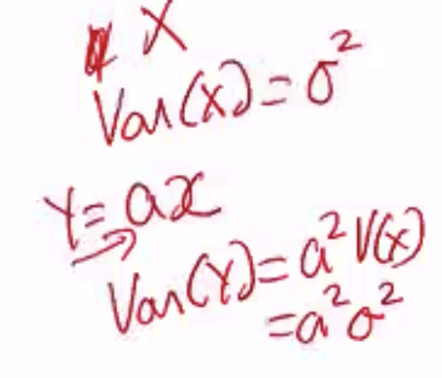 X
Var(X) = σ²
Y = ax
Var(Y) = a² V(x)
= a² σ²